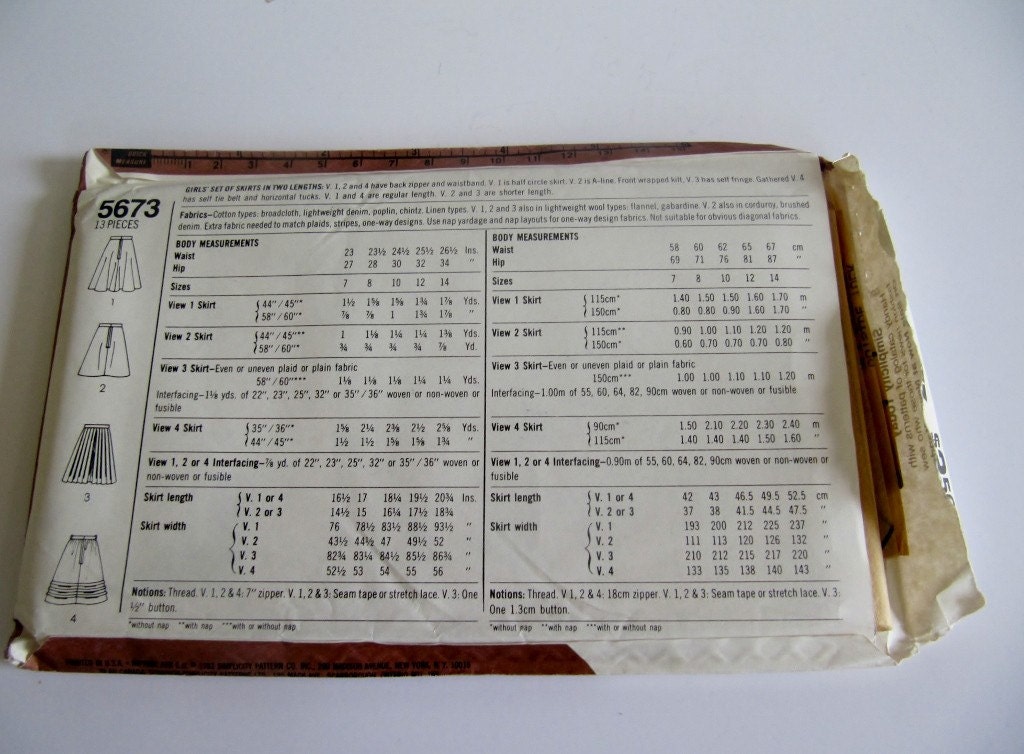 5673
13 PIECES
GIRLS' SET OF SKIRTS IN TWO LENGTHS: V. 1, 2 and 4 have back zipper and waistband. V. 1 is half circle skirt. V. 2 is A-line. Front wrapped kilt, V. 3 has self fringe. Gathered V. 4
has self tie belt and horizontal tucks. V. 1 and 4 are regular length. V. 2 and 3 are shorter length.
Fabrics—Cotton types: broadcloth, lightweight denim, poplin, chintz. Linen types. V. 1, 2 and 3 also in lightweight wool types: flannel, gabardine. V. 2 also in corduroy, brushed
denim. Extra fabric needed to match plaids, stripes, one-way designs. Use nap yardage and nap layouts for one-way design fabrics. Not suitable for obvious diagonal fabrics.
BODY MEASUREMENTS
Waist 23 23½ 24½ 25½ 26½ Ins.
Hip 27 28 30 32 34 "
Sizes 7 8 10 12 14
View 1 Skirt 44"/45"* 1½ 1⅝ 1⅝ 1¾ 1⅞ Yds.
58"/60"* ⅞ ⅞ 1 1¾ 1⅞ "
View 2 Skirt 44"/45"** 1 1⅛ 1¼ 1¼ 1⅜ Yds.
58"/60"* ¾ ¾ ¾ ¾ ⅞ Yd.
View 3 Skirt—Even or uneven plaid or plain fabric
58"/60"*** 1⅛ 1⅛ 1⅛ 1¼ 1¼ Yds.
Interfacing—1⅛ yds. of 22", 23", 25", 32" or 35"/36" woven or non-woven or
fusible
View 4 Skirt 35"/36"* 1⅝ 2¼ 2⅜ 2½ 2⅝ Yds.
44"/45"* 1½ 1½ 1⅝ 1⅝ 1¾ "
View 1, 2 or 4 Interfacing—⅞ yd. of 22", 23", 25", 32" or 35"/36" woven or
non-woven or fusible
Skirt length V. 1 or 4 16½ 17 18¼ 19½ 20¾ Ins.
V. 2 or 3 14½ 15 16¼ 17½ 18¾ "
Skirt width V. 1 76 78½ 83½ 88½ 93½ "
V. 2 43½ 44½ 47 49½ 52 "
V. 3 82¾ 83¼ 84½ 85½ 86¾ "
V. 4 52½ 53 54 55 56 "
Notions: Thread. V. 1, 2 & 4: 7" zipper. V. 1, 2 & 3: Seam tape or stretch lace. V. 3: One
½" button.
*without nap **with nap ***with or without nap
BODY MEASUREMENTS
Waist 58 60 62 65 67 cm
Hip 69 71 76 81 87 "
Sizes 7 8 10 12 14
View 1 Skirt 115cm* 1.40 1.50 1.50 1.60 1.70 m
150cm* 0.80 0.80 0.90 1.60 1.70 "
View 2 Skirt 115cm** 0.90 1.00 1.10 1.20 1.20 m
150cm* 0.60 0.70 0.70 0.70 0.80 "
View 3 Skirt—Even or uneven plaid or plain fabric
150cm*** 1.00 1.00 1.10 1.10 1.20 m
Interfacing—1.00m of 55, 60, 64, 82, 90cm woven or non-woven or fusible
View 4 Skirt 90cm* 1.50 2.10 2.20 2.30 2.40 m
115cm* 1.40 1.40 1.40 1.50 1.60 "
View 1, 2 or 4 Interfacing—0.90m of 55, 60, 64, 82, 90cm woven or non-woven or
fusible
Skirt length V. 1 or 4 42 43 46.5 49.5 52.5 cm
V. 2 or 3 37 38 41.5 44.5 47.5 "
Skirt width V. 1 193 200 212 225 237 "
V. 2 111 113 120 126 132 "
V. 3 210 212 215 217 220 "
V. 4 133 135 138 140 143 "
Notions: Thread. V. 1, 2 & 4: 18cm zipper. V. 1, 2 & 3: Seam tape or stretch lace. V. 3:
One 1.3cm button.
*without nap **with nap ***with or without nap
1
2
3
4